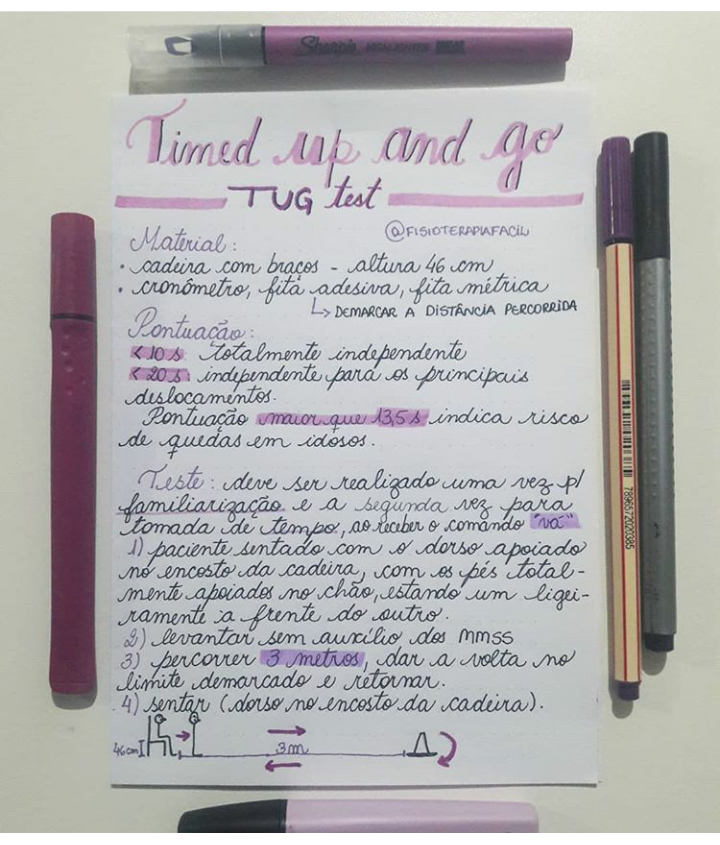 Sharpie HIGHLIGHTER
Timed up and go
TUG test
@FISIOTERAPIAFACIL
Material:
• cadeira com braços - altura 46 cm
• cronômetro, fita adesiva, fita métrica
↳ DEMARCAR A DISTÂNCIA PERCORRIDA
Pontuação:
< 10 s totalmente independente
< 20 s: independente para os principais
deslocamentos.
Pontuação maior que 13,5 s indica risco
de quedas em idosos.
Teste: deve ser realizado uma vez p/
familiarização e a segunda vez para
tomada de tempo, ao receber o comando "vá"
1) paciente sentado com o dorso apoiado
no encosto da cadeira, com os pés total-
mente apoiados no chão, estando um ligei-
ramente a frente do outro.
2) levantar sem auxílio dos MMSS
3) percorrer 3 metros, dar a volta no
limite demarcado e retornar.
4) sentar (dorso no encosto da cadeira).
46cm
3m
7896572020385